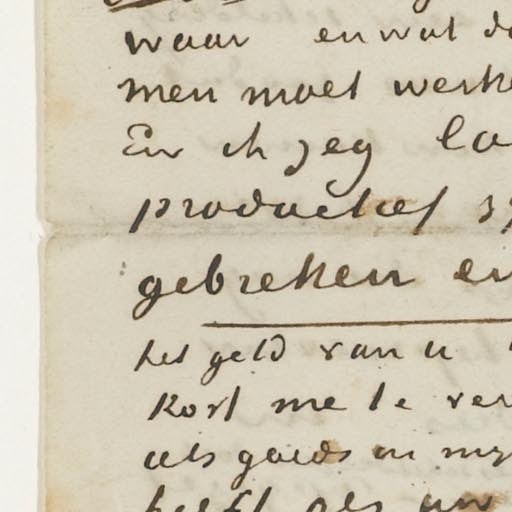 waar en wat d
men moet werke
En ik zeg la
productief z
gebreken en
het geld van u
Kort me te ver
als goeds in my
heeft als uw